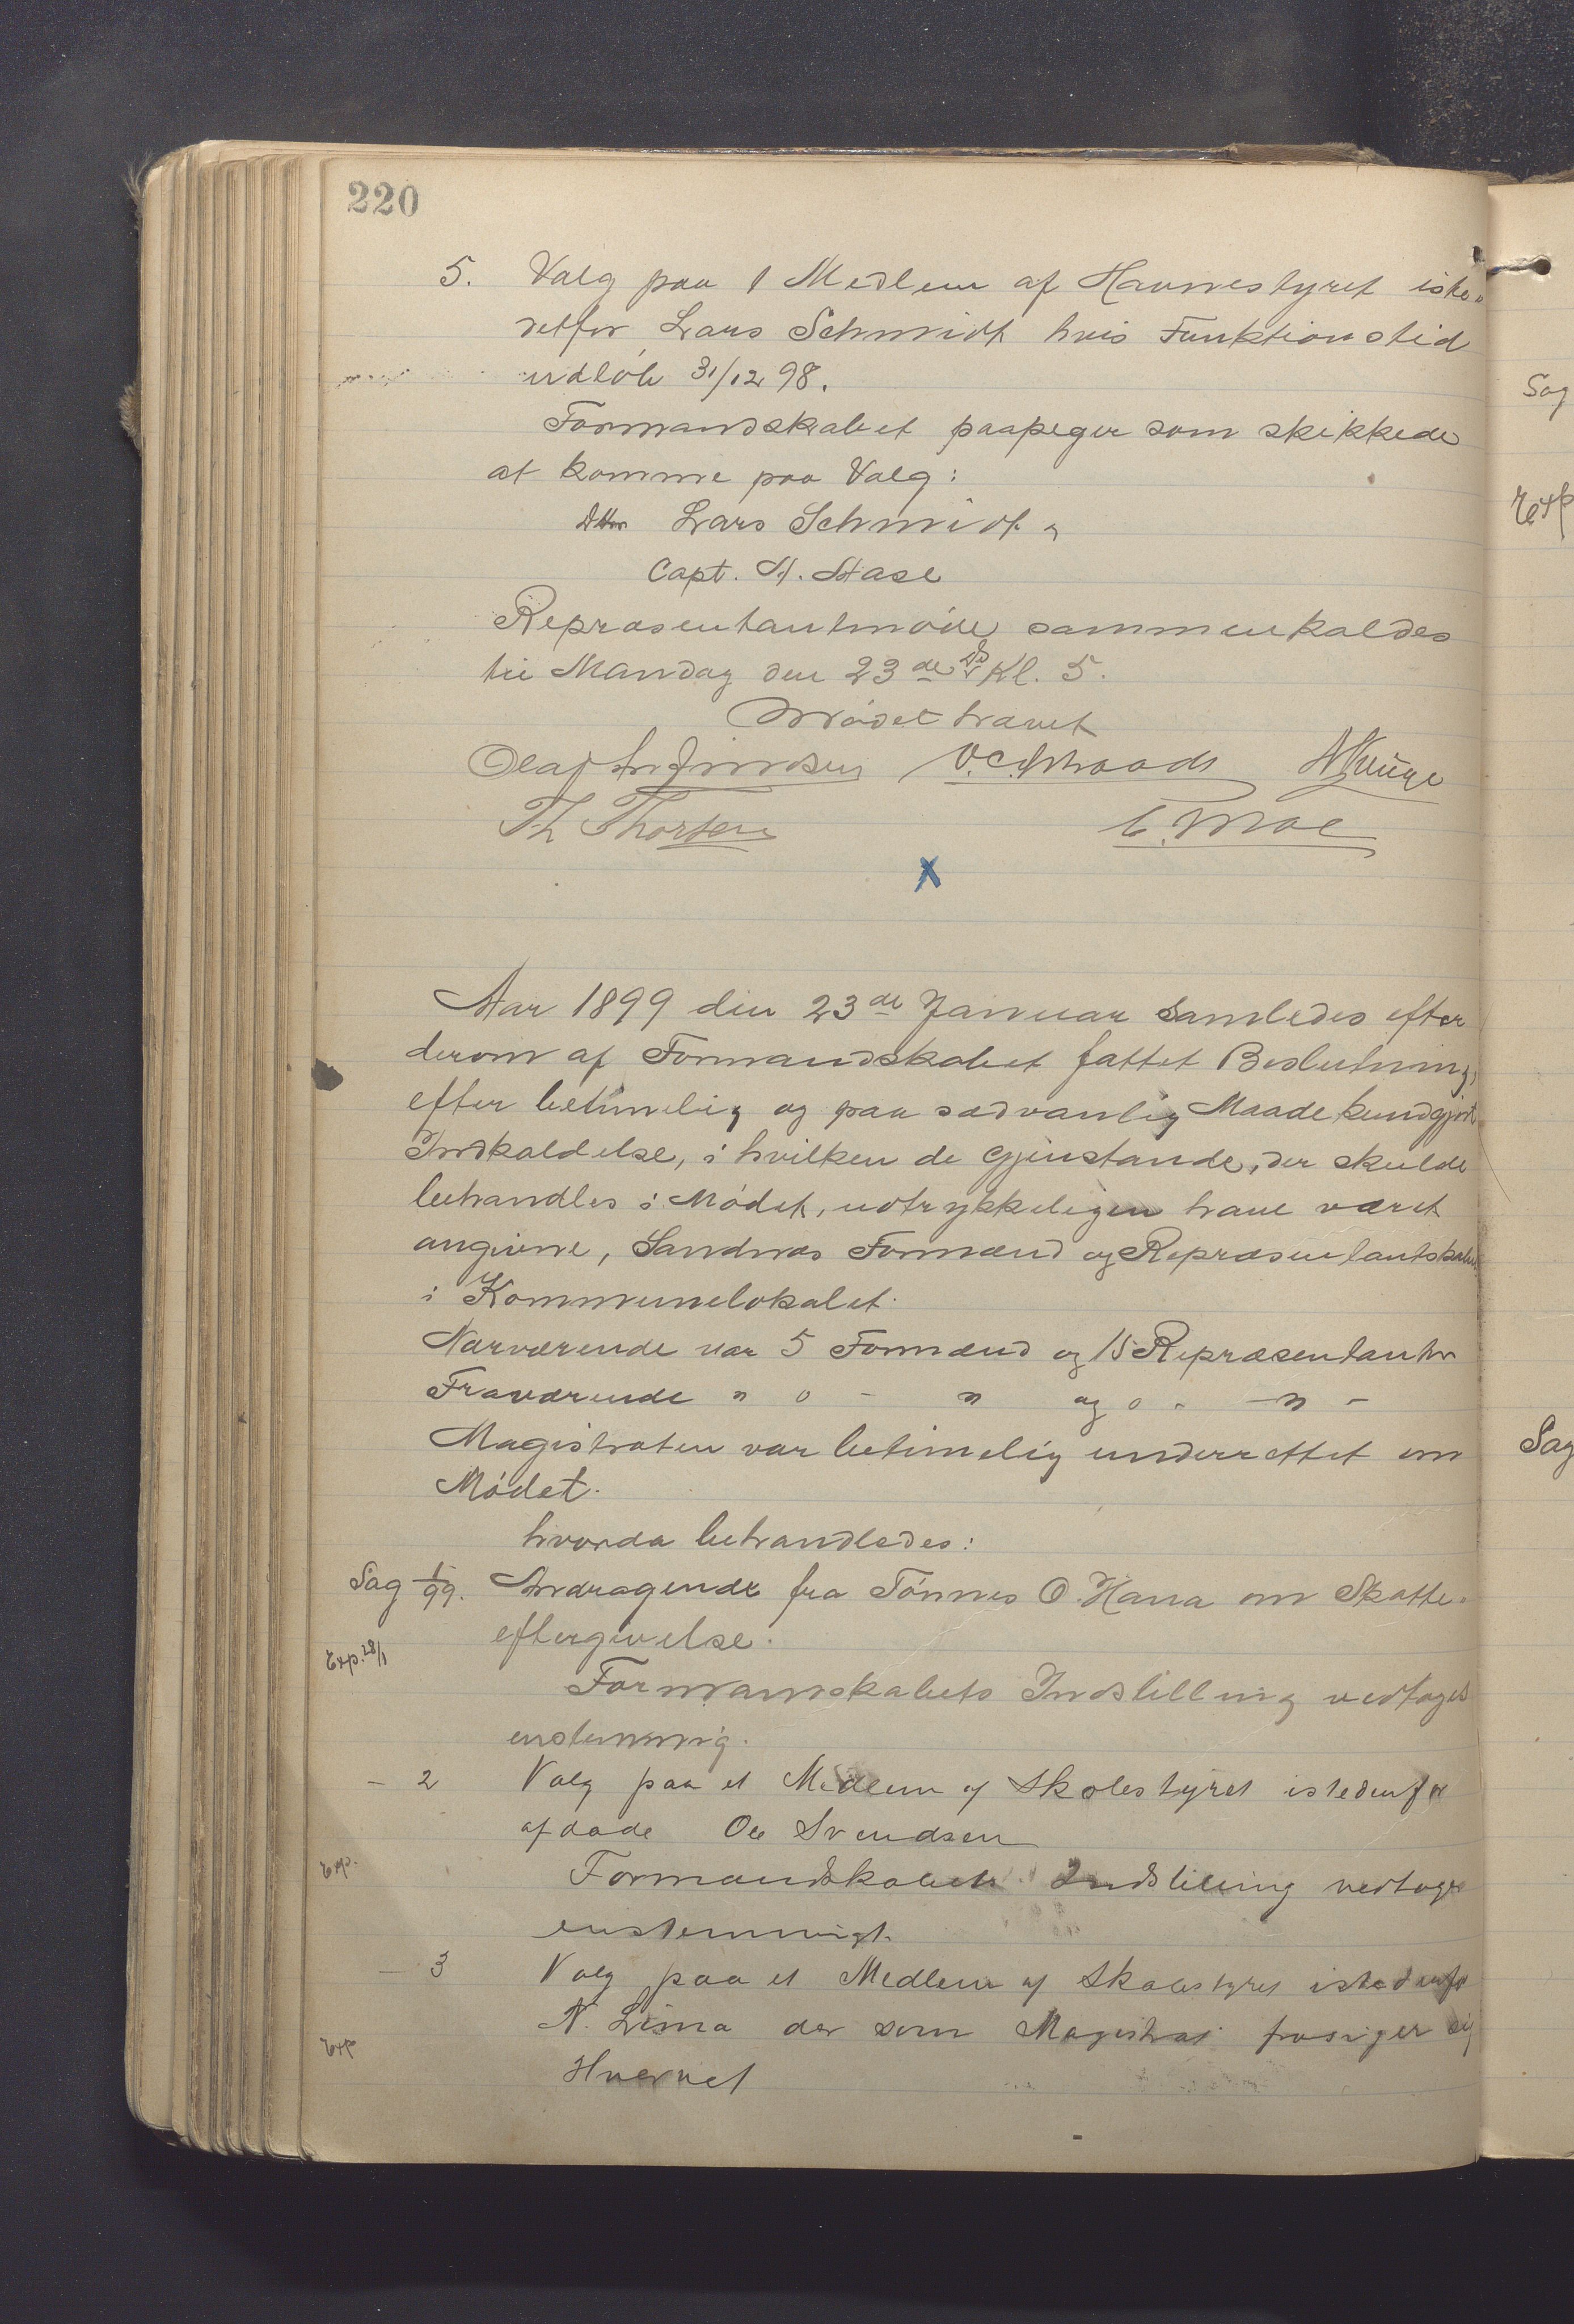 220
5. Valg paa 1 Medlem af Havnestyret iste-
detfor Lars Schmidt hvis Funktionstid
udløb 31/12 98.
Formandskabet paapeger som skikkede
at komme paa Valg:
DHrr Lars Schmidt &
Capt. A. Aase
Repræsentantmøde sammenkaldes
til Mandag den 23de ds Kl. 5.
Mødet hævet
Th Thorsen C. Moe
x
Aar 1899 den 23de Januar samledes efter
derom af Formandskabet fattet Beslutning,
efter betimelig og paa sædvanlig Maade kundgjort
Indkaldelse, i hvilken de Gjenstande, der skulde
behandles i Mødet, udtrykkeligen have været
angivne, Sandnæs Formænd og Repræsentantskab
i Kommunelokalet.
Nærværende var 5 Formænd og 15 Repræsentanter
Fraværende " 0 - " og 0 - -"-
Magistraten var betimelig underrettet om
Mødet.
hvorda behandledes:
Sag 1/99. Andragende fra Tönnes O. Hana om Skatte-
eftergivelse.
Exp. 28/1
Formandskabets Indstilling vedtages
enstemmig.
- 2 Valg paa et Medlem af Skolestyret istedenfor
afdøde Ole Svendsen
Exp.
Formandskabets Indstilling vedtages
enstemmigt.
- 3 Valg paa et Medlem af Skolestyret istedenfor
N. Lima der som Magistrat frasiger sig
Exp
Hvervet
Sag
Exp
Sag